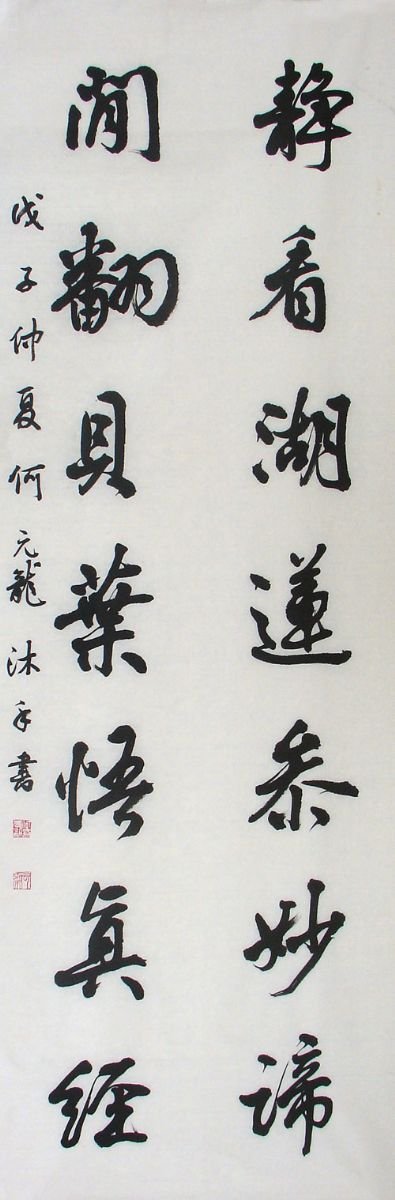 静看湖蓮叅妙諦
閒翻貝葉悟真經
戊子仲夏何元龍沐手書